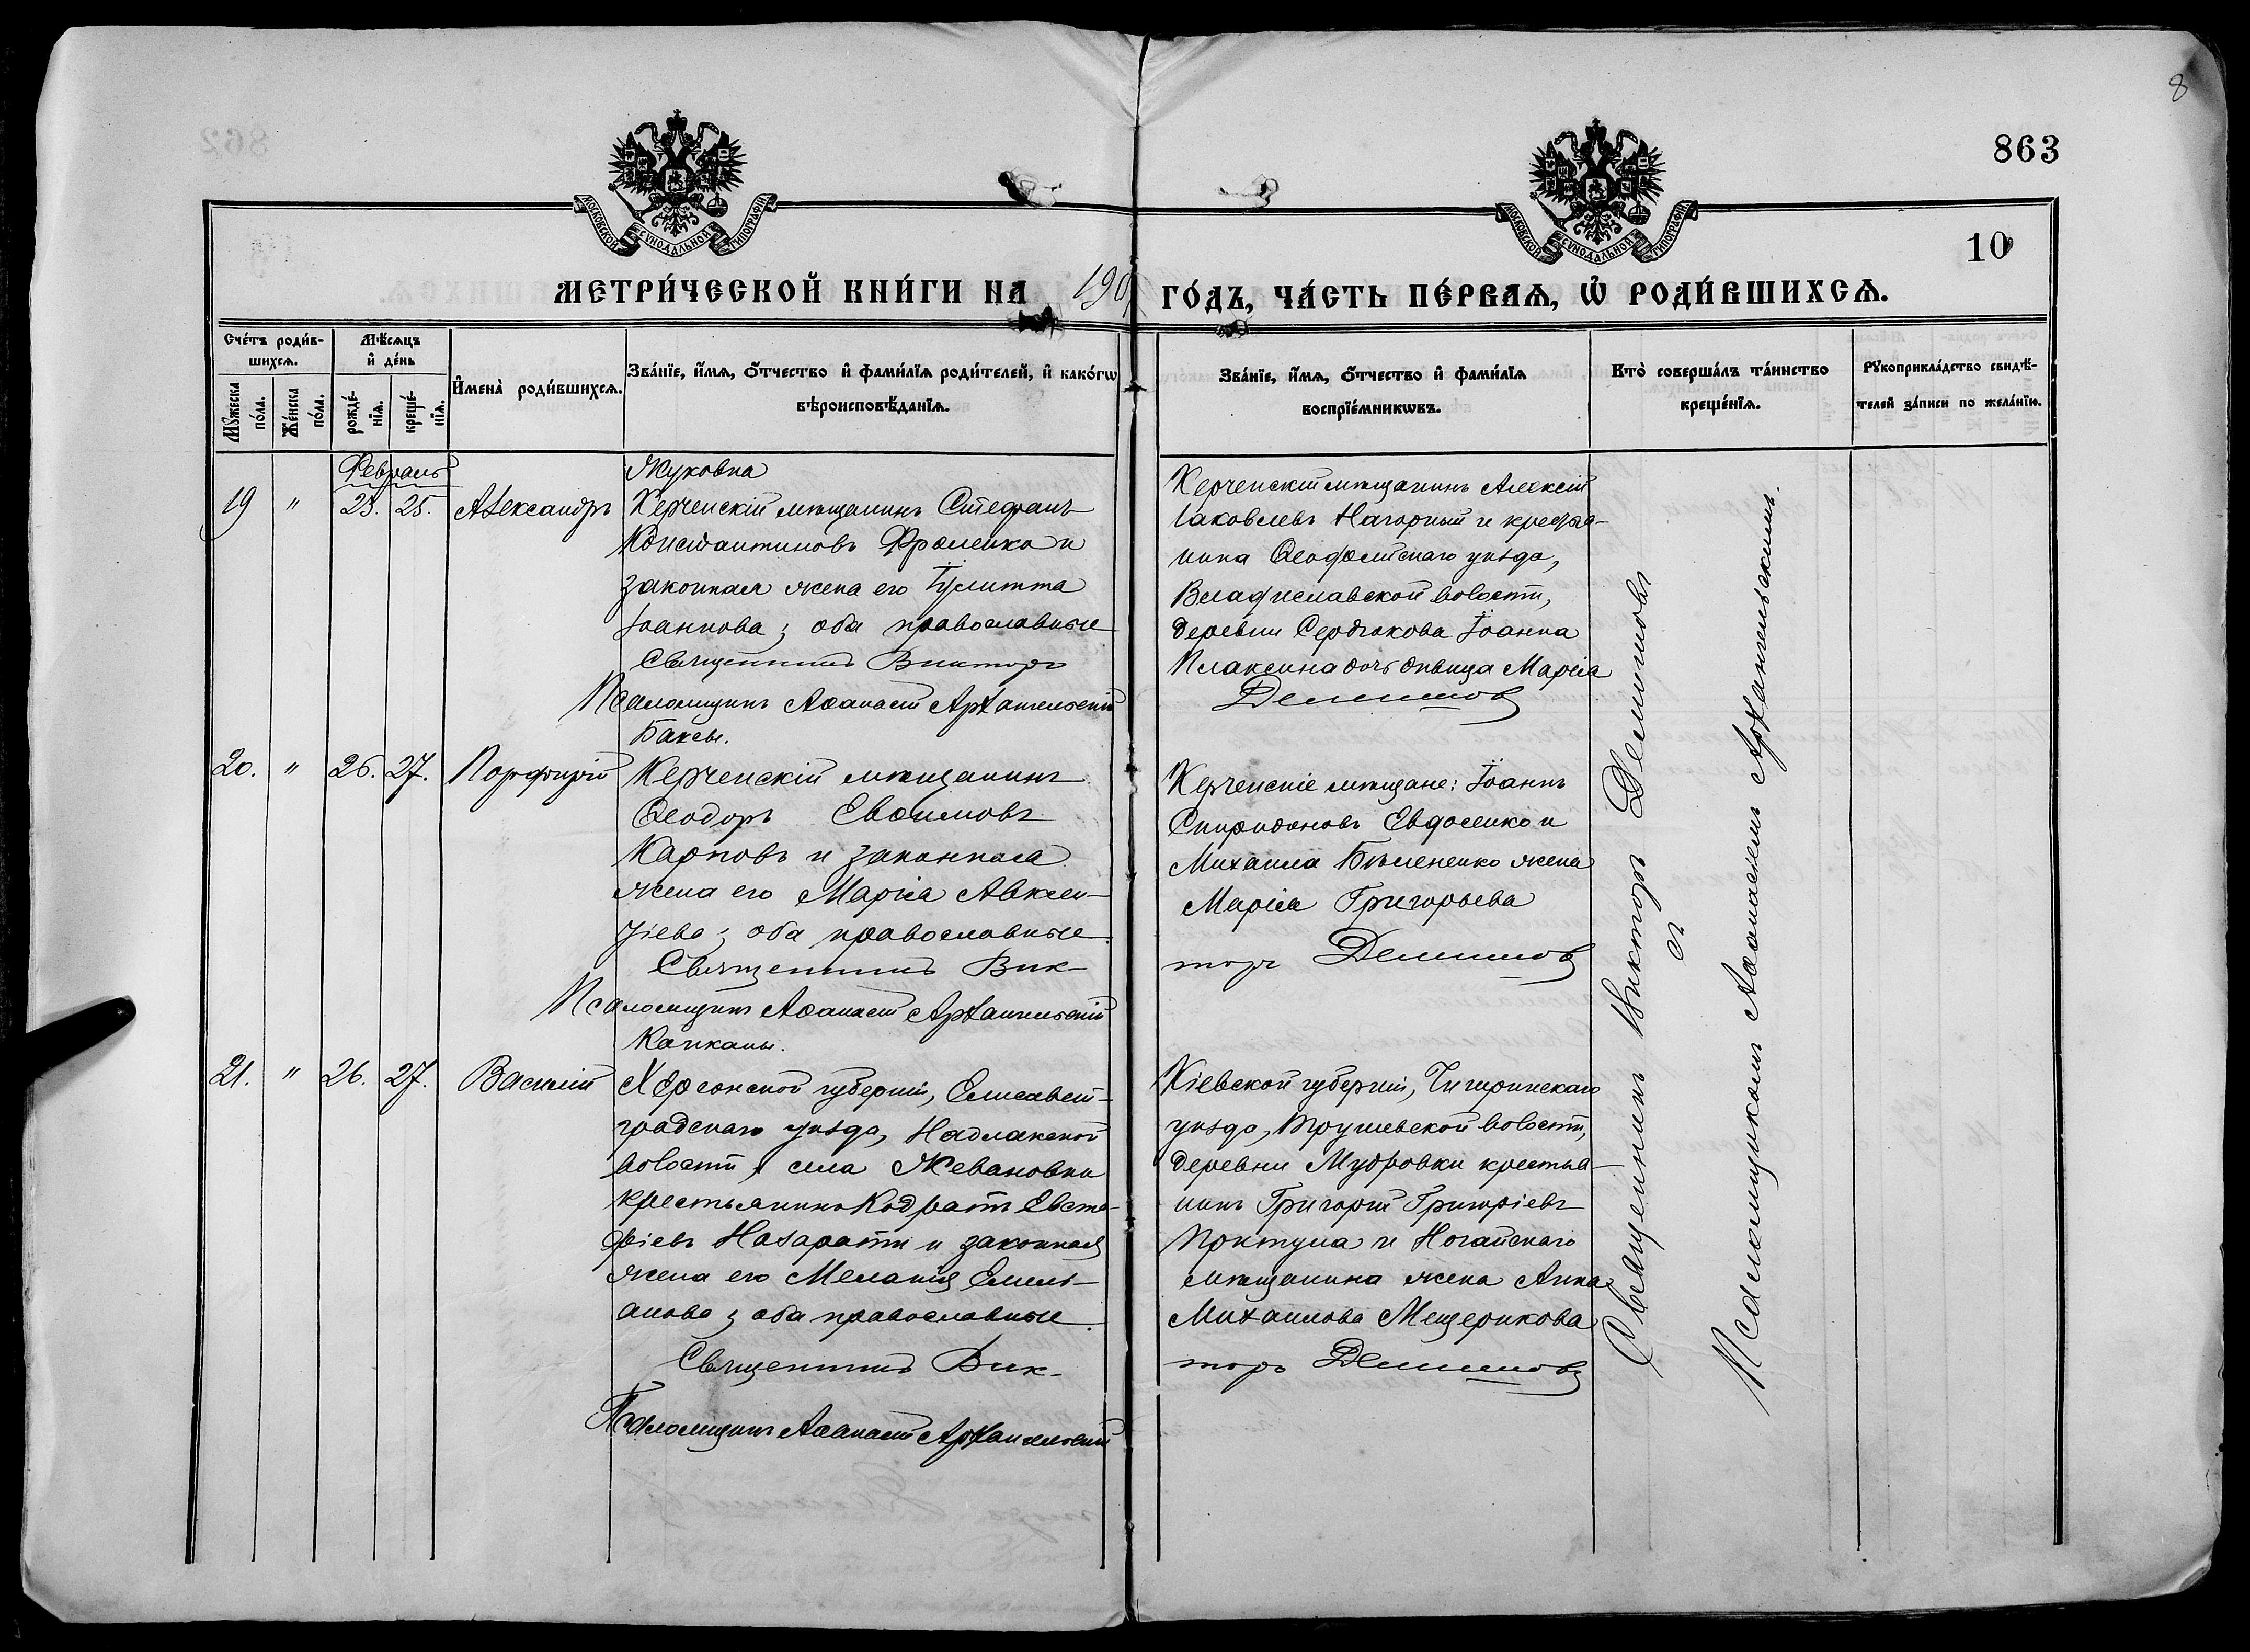 8
863
10
МОСКОВСКОЙ СУНОДАЛЬНОЙ ТИПОГРАФІИ
МОСКОВСКОЙ СУНОДАЛЬНОЙ ТИПОГРАФІИ
МЕТРИ́ЧЕСКОЙ КНИ́ГИ НА 190 ГО́ДЪ, ЧА́СТЬ ПЕ́РВАЯ, Ѿ РОДИ́ВШИХСЯ.
Сче́тъ роди́в-
шихся.
Мѣ́сяцъ
и҆ де́нь
Мꙋ́жеска
по́ла.
Же́нска
по́ла.
рожде́-
нїя.
креще́-
нїя.
И҆мена̀ роди́вшихся.
Зва́нїе, и҆́мя, ѻ҆́тчество и҆ фами́лїя роди́телей, и҆ како́гѡ
вѣроисповѣ́данїя.
Зва́нїе, и҆́мя, ѻ҆́тчество и҆ фами́лїя
воспрїе́мникѡвъ.
Кто̀ соверша́лъ та́инство
креще́нїя.
Рꙋкоприкла́дство свидѣ́-
телей за́писи по жела́нїю.
Февраль
Жуковка
19 " 23. 25. Александръ
Керченскій мѣщанинъ Стефанъ
Константиновъ Фроленко и
законная жена его Іулитта
Іоаннова; оба православные
Священникъ Викторъ
Псаломщикъ Аѳанасій Архангельскій
Керченскій мѣщанинъ Алексій
Іаковлевъ Нагорный и крестья-
нина Ѳеодосійскаго уѣзда,
Владиславской волости,
деревни Сердюкова Іоанна
Плаксина дочь дѣвица Марія
Демимов
Баксы.
20. " 26. 27. Порфирій
Керченскій мѣщанинъ
Ѳеодоръ Евѳимовъ
Карповъ и законная
жена его Марія Авксен-
тіева; оба православные.
Священникъ Вик-
Псаломщикъ Аѳанасій Архангельскій
Керченскіе мѣщане: Іоаннъ
Спиридоновъ Евдосенко и
Михаила Бѣлененко жена
Марія Григорьева
торъ Демимов
Капканы.
21. " 26. 27. Василій
Херсонской губерніи, Елисавет-
градскаго уѣзда, Надлакской
волости, села Жевановки
крестьянинъ Кодратъ Евста-
фіевъ Назарати и законная
жена его Меланія Емелі-
анова; оба православные.
Священникъ Вик-
Псаломщикъ Аѳанасій Архангельскій
Кіевской губерніи, Чигиринскаго
уѣзда, Трушевской волости,
деревни Мудровки крестья-
нинъ Григорій Григоріевъ
и Ногайскаго
мѣщанина жена Анна
Михаилова Мещерикова
торъ Демимовъ
Священникъ Викторъ Демимовъ
съ
Псаломщикомъ Аѳанасіемъ Архангельскимъ.